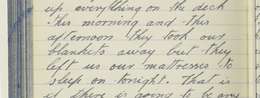 up everything on the deck
this morning and this
afternoon they took our
blankets away but they
left us our mattresses to
sleep on tonight. That is
if there is going to be any